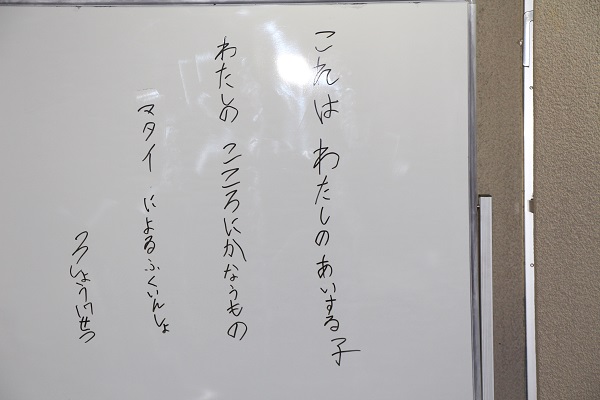 これは わたしの あいする 子
わたしの こころにかなうもの
マタイ によるふくいんしょ
3しょう17せつ